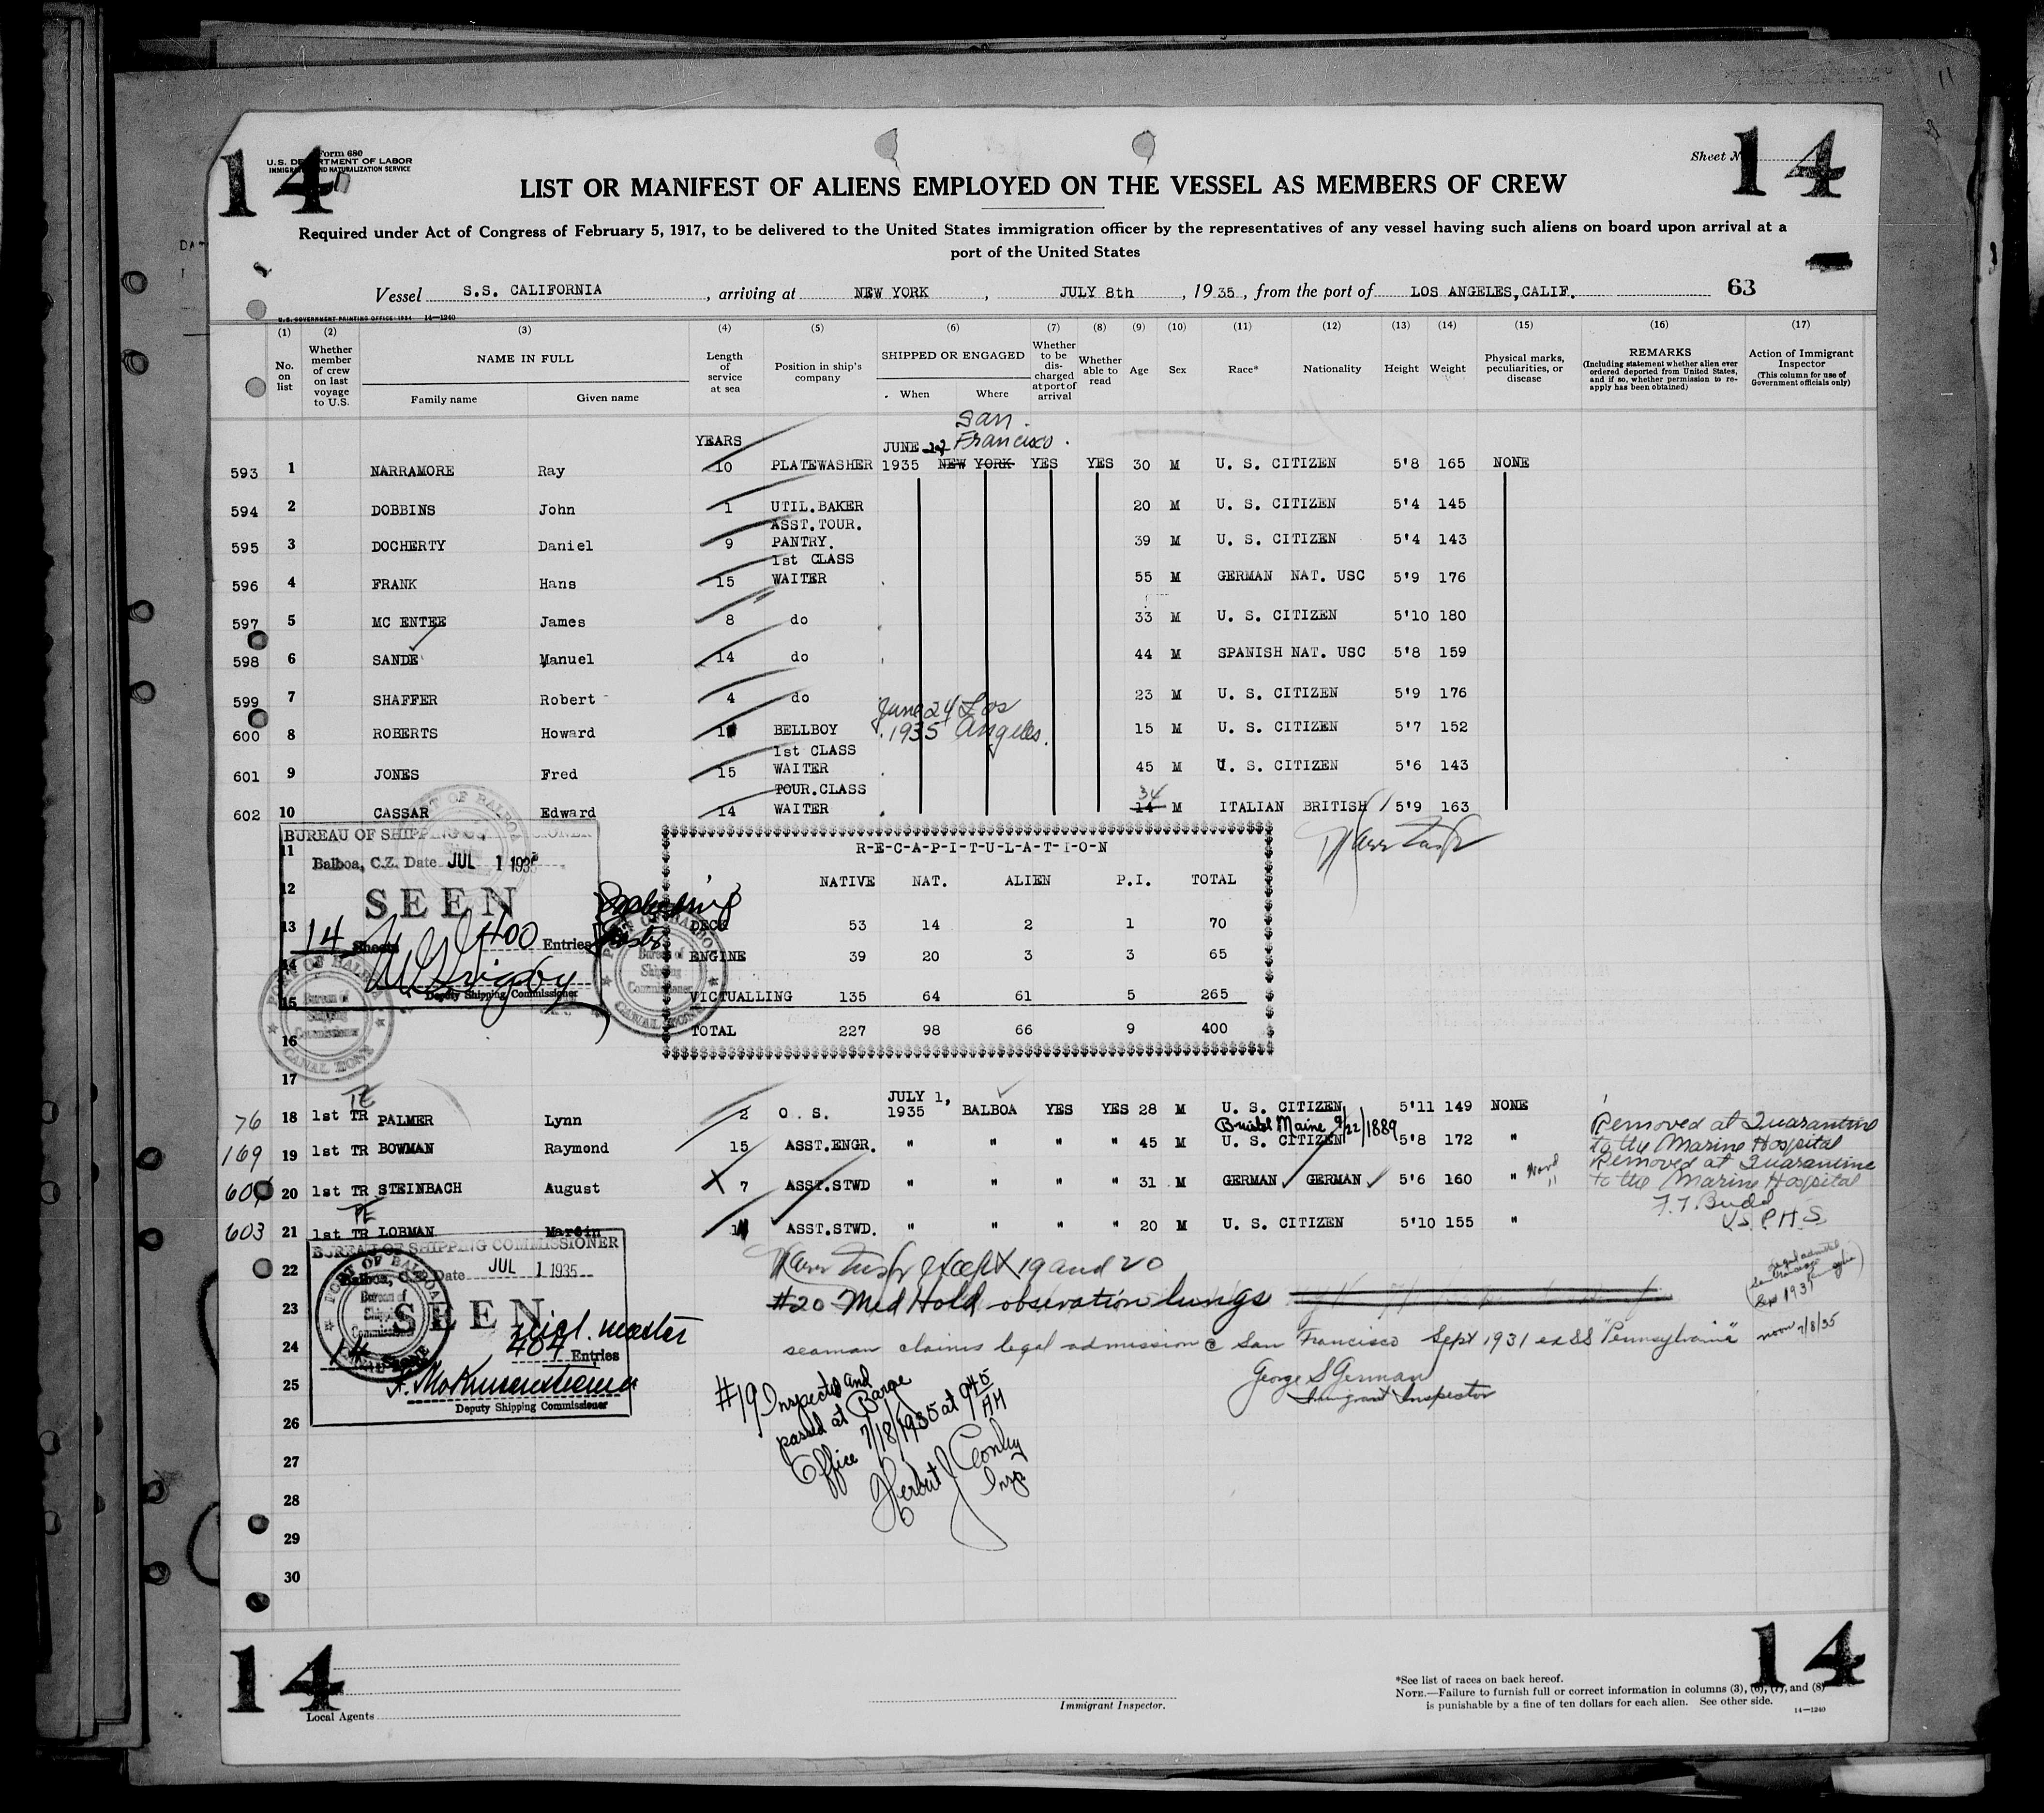 14
14
Form 680
U.S. DEPARTMENT OF LABOR
IMMIGRATION AND NATURALIZATION SERVICE
Sheet No.
LIST OR MANIFEST OF ALIENS EMPLOYED ON THE VESSEL AS MEMBERS OF CREW
Required under Act of Congress of February 5, 1917, to be delivered to the United States immigration officer by the representatives of any vessel having such aliens on board upon arrival at a
port of the United States
Vessel S.S. CALIFORNIA, arriving at NEW YORK, JULY 8th, 1935, from the port of LOS ANGELES, CALIF. 63
U.S. GOVERNMENT PRINTING OFFICE: 1934 14—1240
(1) (2) (3) (4) (5) (6) (7) (8) (9) (10) (11) (12) (13) (14) (15) (16) (17)
No. on list
Whether member of crew on last voyage to U.S.
NAME IN FULL
Family name Given name
Length of service at sea
Position in ship's company
SHIPPED OR ENGAGED
When Where
Whether to be discharged at port of arrival
Whether able to read
Age Sex Race* Nationality Height Weight
Physical marks, peculiarities, or disease
REMARKS
(Including statement whether alien ever ordered deported from United States, and if so, whether permission to reapply has been obtained)
Action of Immigrant Inspector
(This column for use of Government officials only)
San
YEARS JUNE Francisco.
593 1 NARRAMORE Ray 10 PLATEWASHER 1935 NEW YORK YES YES 30 M U. S. CITIZEN 5'8 165 NONE
594 2 DOBBINS John 1 UTIL.BAKER 20 M U. S. CITIZEN 5'4 145
ASST.TOUR.
595 3 DOCHERTY Daniel 9 PANTRY. 39 M U. S. CITIZEN 5'4 143
1st CLASS
596 4 FRANK Hans 15 WAITER 55 M GERMAN NAT. USC 5'9 176
597 5 MC ENTEE James 8 do 33 M U. S. CITIZEN 5'10 180
598 6 SANDE Manuel 14 do 44 M SPANISH NAT. USC 5'8 159
599 7 SHAFFER Robert 4 do 23 M U. S. CITIZEN 5'9 176
June 24 Los
600 8 ROBERTS Howard BELLBOY 1935 Angeles. 15 M U. S. CITIZEN 5'7 152
1st CLASS
601 9 JONES Fred 15 WAITER 45 M U. S. CITIZEN 5'6 143
TOUR.CLASS
34
602 10 CASSAR Edward 14 WAITER 14 M ITALIAN BRITISH 5'9 163
BUREAU OF SHIPPING COMMISSIONER
Balboa, C.Z. Date JUL 1 1935
SEEN
14 Sheets 400 Entries
Deputy Shipping Commissioner
PORT OF BALBOA
Bureau of
Shipping
Commissioner
CANAL ZONE
PORT OF BALBOA
Bureau of
Shipping
Commissioner
CANAL ZONE
11
12
13
14
15
16
17
R-E-C-A-P-I-T-U-L-A-T-I-O-N
NATIVE NAT. ALIEN P.I. TOTAL
DECK 53 14 2 1 70
ENGINE 39 20 3 3 65
VICTUALLING 135 64 61 5 265
TOTAL 227 98 66 9 400
JULY 1,
76 18 1st TR PALMER Lynn 2 O. S. 1935 BALBOA YES YES 28 M U. S. CITIZEN 5'11 149 NONE
Bristol Maine 9/22/1889
169 19 1st TR BOWMAN Raymond 15 ASST.ENGR. " " " " 45 M U. S. CITIZEN 5'8 172 "
Removed at Quarantine
to the Marine Hospital
20 1st TR STEINBACH August 7 ASST.STWD " " " " 31 M GERMAN GERMAN 5'6 160 "
Removed at Quarantine
to the Marine Hospital
F. T. Budd
U.S.P.H.S.
603 21 1st TR LOBMAN Martin ASST.STWD. " " " " 20 M U. S. CITIZEN 5'10 155 "
BUREAU OF SHIPPING COMMISSIONER
Balboa, C.Z. Date JUL 1 1935
SEEN
incl. master
14 404 Entries
Deputy Shipping Commissioner
PORT OF BALBOA
Bureau of
Shipping
Commissioner
CANAL ZONE
22
23
24
25
26
27
28
29
30
except 19 and 20
#20 Med Hold observation lungs
seaman claims legal admission @ San Francisco Sept 1931 ex SS "Pennsylvania"
noon 7/8/35
George S German
Immigrant Inspector
Legal admitted
San Francisco
Sept 1931
#19 Inspected and
passed at Barge
Office 7/18/1935 at 9 45 AM
Herbert J Conley
Insp
14
14
Local Agents
Immigrant Inspector.
*See list of races on back hereof.
NOTE.—Failure to furnish full or correct information in columns (3), (6), (7), and (8)
is punishable by a fine of ten dollars for each alien. See other side.
14—1240